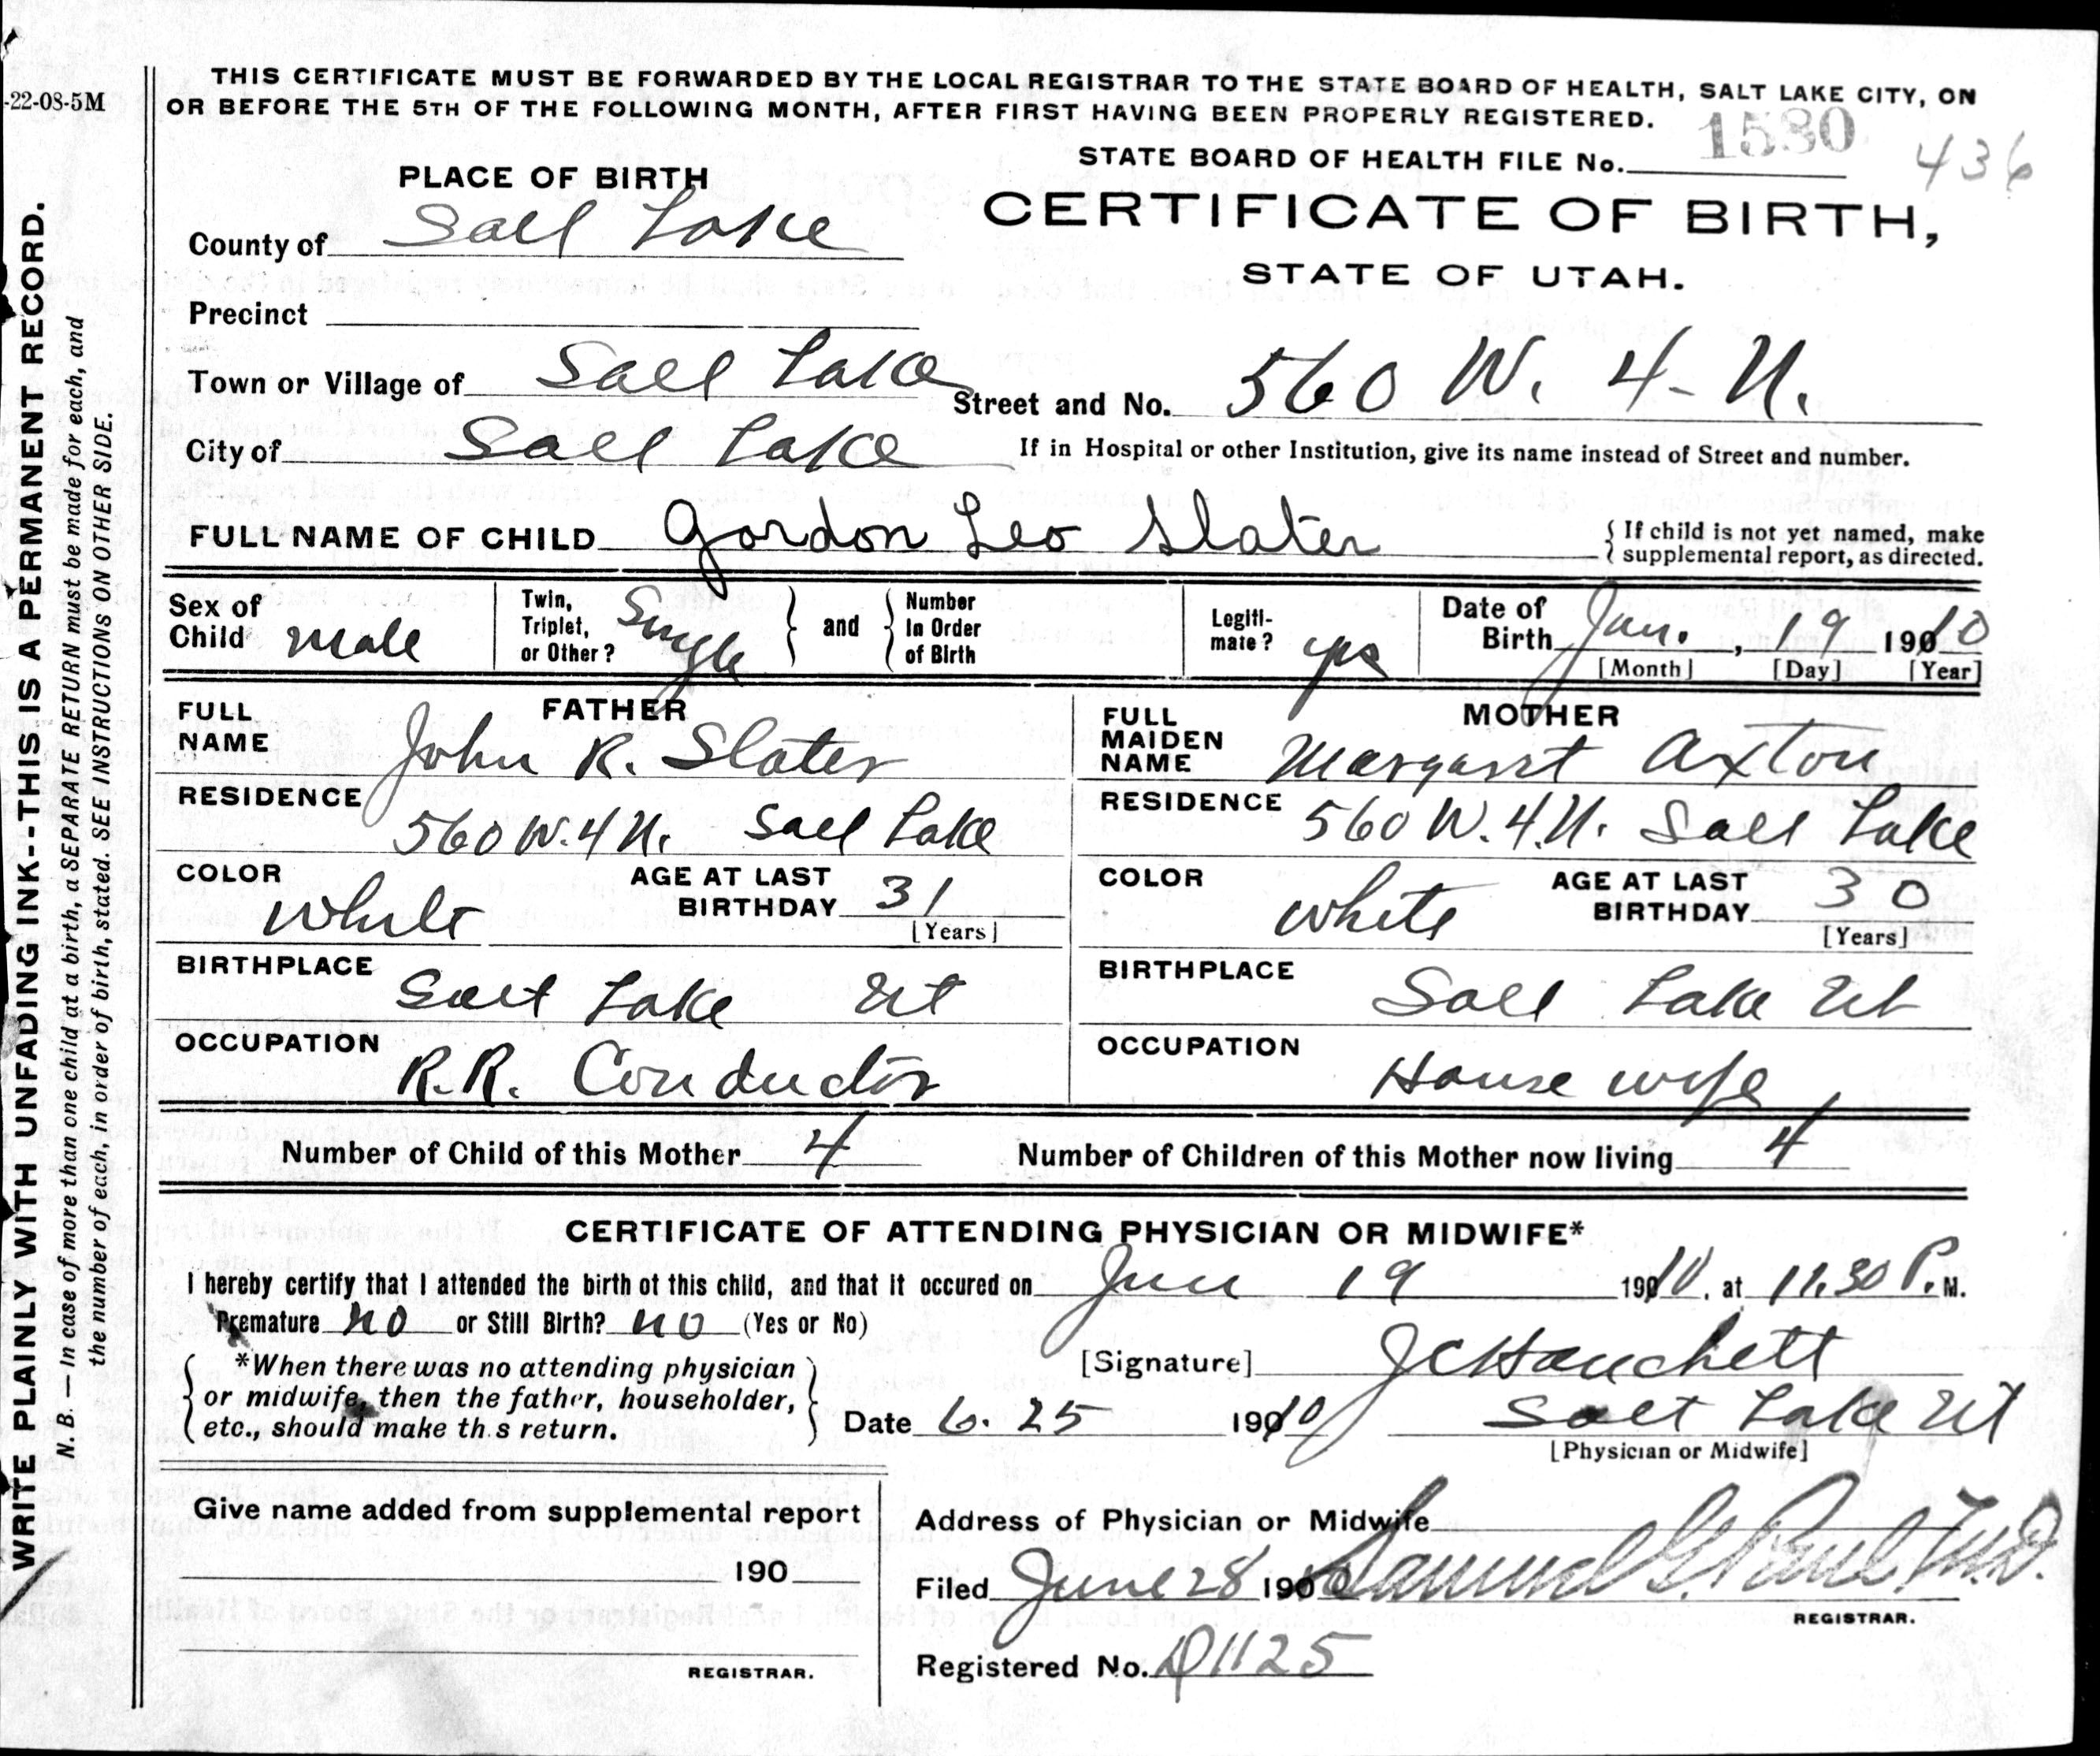 -22-08-5M
THIS CERTIFICATE MUST BE FORWARDED BY THE LOCAL REGISTRAR TO THE STATE BOARD OF HEALTH, SALT LAKE CITY, ON
OR BEFORE THE 5TH OF THE FOLLOWING MONTH, AFTER FIRST HAVING BEEN PROPERLY REGISTERED.
STATE BOARD OF HEALTH FILE No. 1530 436
PLACE OF BIRTH
CERTIFICATE OF BIRTH,
STATE OF UTAH.
County of Salt Lake
Precinct
Town or Village of Salt Lake
Street and No. 560 W. 4-N.
City of Salt Lake
If in Hospital or other Institution, give its name instead of Street and number.
FULL NAME OF CHILD Gordon Leo Slater { If child is not yet named, make
supplemental report, as directed.
Sex of Child male
Twin, Triplet, or Other? Single } and { Number In Order of Birth
Legiti-mate? yes
Date of Birth Jun. , 19 19010
[Month] [Day] [Year]
FATHER
FULL NAME John R. Slater
RESIDENCE 560 W. 4 N. Salt Lake
COLOR White AGE AT LAST BIRTHDAY 31
[Years]
BIRTHPLACE Salt Lake Ut
OCCUPATION R.R. Conductor
MOTHER
FULL MAIDEN NAME Margaret Axton
RESIDENCE 560 W. 4 N. Salt Lake
COLOR White AGE AT LAST BIRTHDAY 30
[Years]
BIRTHPLACE Salt Lake Ut
OCCUPATION House wife
Number of Child of this Mother 4 Number of Children of this Mother now living 4
CERTIFICATE OF ATTENDING PHYSICIAN OR MIDWIFE*
I hereby certify that I attended the birth of this child, and that it occured on Jun 19 19010, at 11.30 P. M.
Premature no or Still Birth? no (Yes or No)
*When there was no attending physician
or midwife, then the father, householder,
etc., should make th s return.
[Signature] J C Hanchett
Date 6.25 19010 Salt Lake Ut
[Physician or Midwife]
Give name added from supplemental report
190
REGISTRAR.
Address of Physician or Midwife
Filed June 28 190 Samuel G. Paul, M.D.
REGISTRAR.
Registered No. 1125
WRITE PLAINLY WITH UNFADING INK--THIS IS A PERMANENT RECORD.
N. B. — In case of more than one child at a birth, a SEPARATE RETURN must be made for each, and
the number of each, in order of birth, stated. SEE INSTRUCTIONS ON OTHER SIDE.